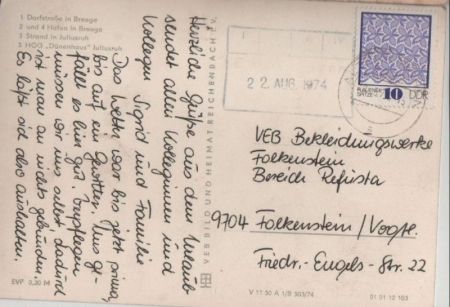 1 Dorfstraße in Breege
2 und 4 Hafen in Breege
3 Strand in Juliusruh
5 HOG „Dünenhaus" Juliusruh
Herzliche Grüße aus dem Urlaub
sendet allen Kolleginnen und
Kollegen Sigrid und Familie
Das Wetter war bis jetzt prima,
bis auf ein Gewitter. Uns ge-
fällt es hier gut. Verpflegen
müssen wir uns selbst dadurch
ist man an nichts gebunden.
Es läßt sich also aushalten.
EVP 0,20 M
VEB BILD UND HEIMAT REICHENBACH i. V.
22. AUG. 1974
PLAUENER
SPITZE
10
DDR
VEB Bekleidungswerke
Falkenstein
Bereich Refista
9704 Falkenstein/Vogtl.
Friedr.-Engels-Str. 22
V 11 50 A 1/B 503/74
01 01 12 103